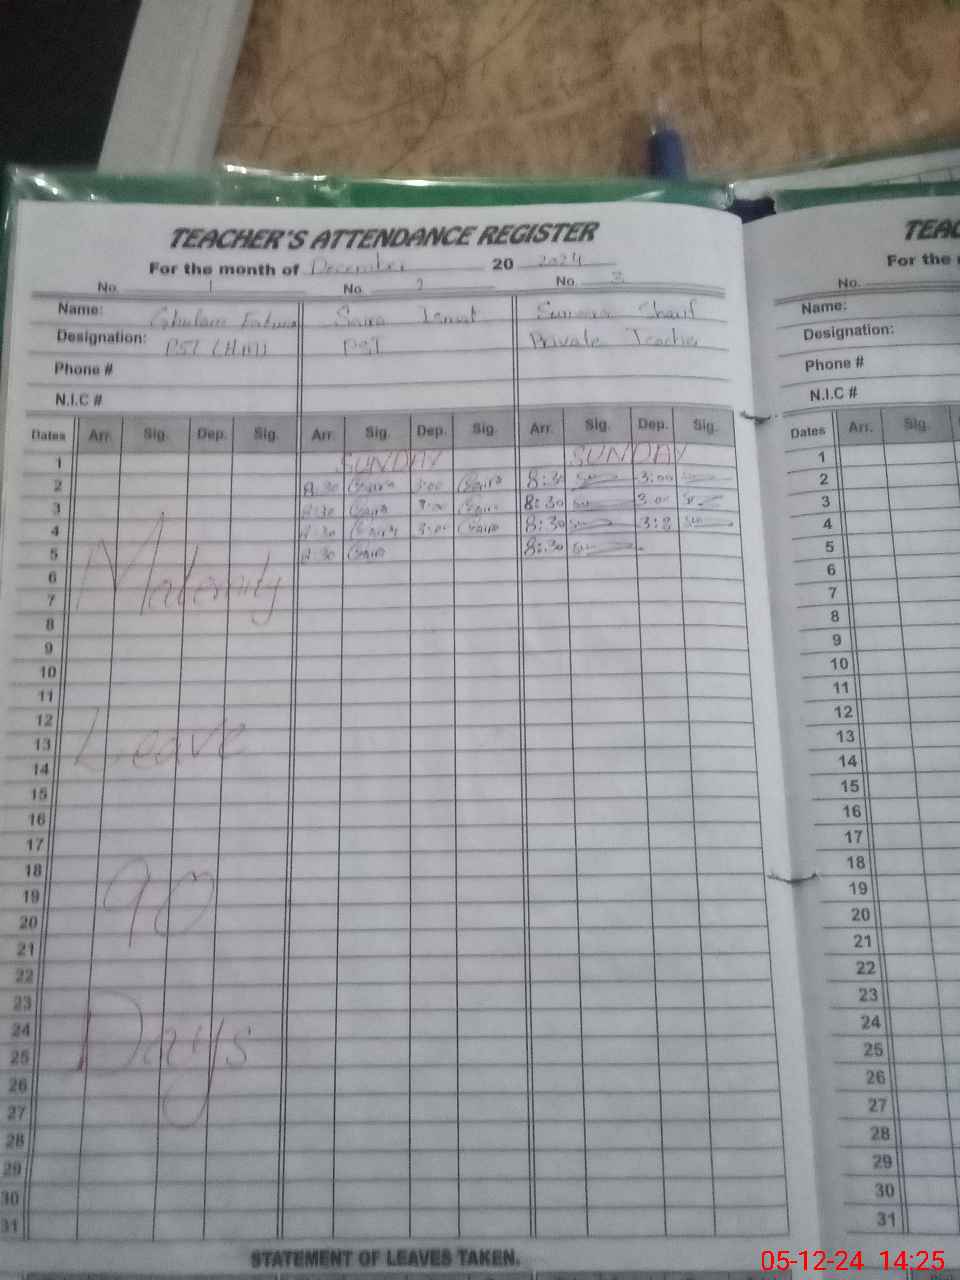 TEACHER'S ATTENDANCE REGISTER TEAC
For the month of December 20 2024 For the
No. 1 No. 2 No. 3 No.
Name: Ghulam Fatima Saira Ismat Sumaira Sharif Name:
Designation: PST (HM) PST Private Teacher Designation:
Phone # Phone #
N.I.C # N.I.C #
Dates Arr. Sig. Dep. Sig. Arr. Sig. Dep. Sig. Arr. Sig. Dep. Sig. Dates Arr. Sig.
1 SUNDAY SUNDAY 1
2 8:30 Saira 3:00 Saira 8:30 3:00 2
3 8:30 Saira 3:00 Saira 8:30 3:00 3
4 8:30 Saira 3:00 Saira 8:30 4
5 8:30 Saira 8:30 5
Maternity
6 6
7 7
8 8
9 9
10 10
11 11
12 12
Leave
13 13
14 14
15 15
16 16
17 17
18 18
90
19 19
20 20
21 21
22 22
23 23
24 24
Days
25 25
26 26
27 27
28 28
29 29
30 30
31 31
STATEMENT OF LEAVES TAKEN.
05-12-24 14:25